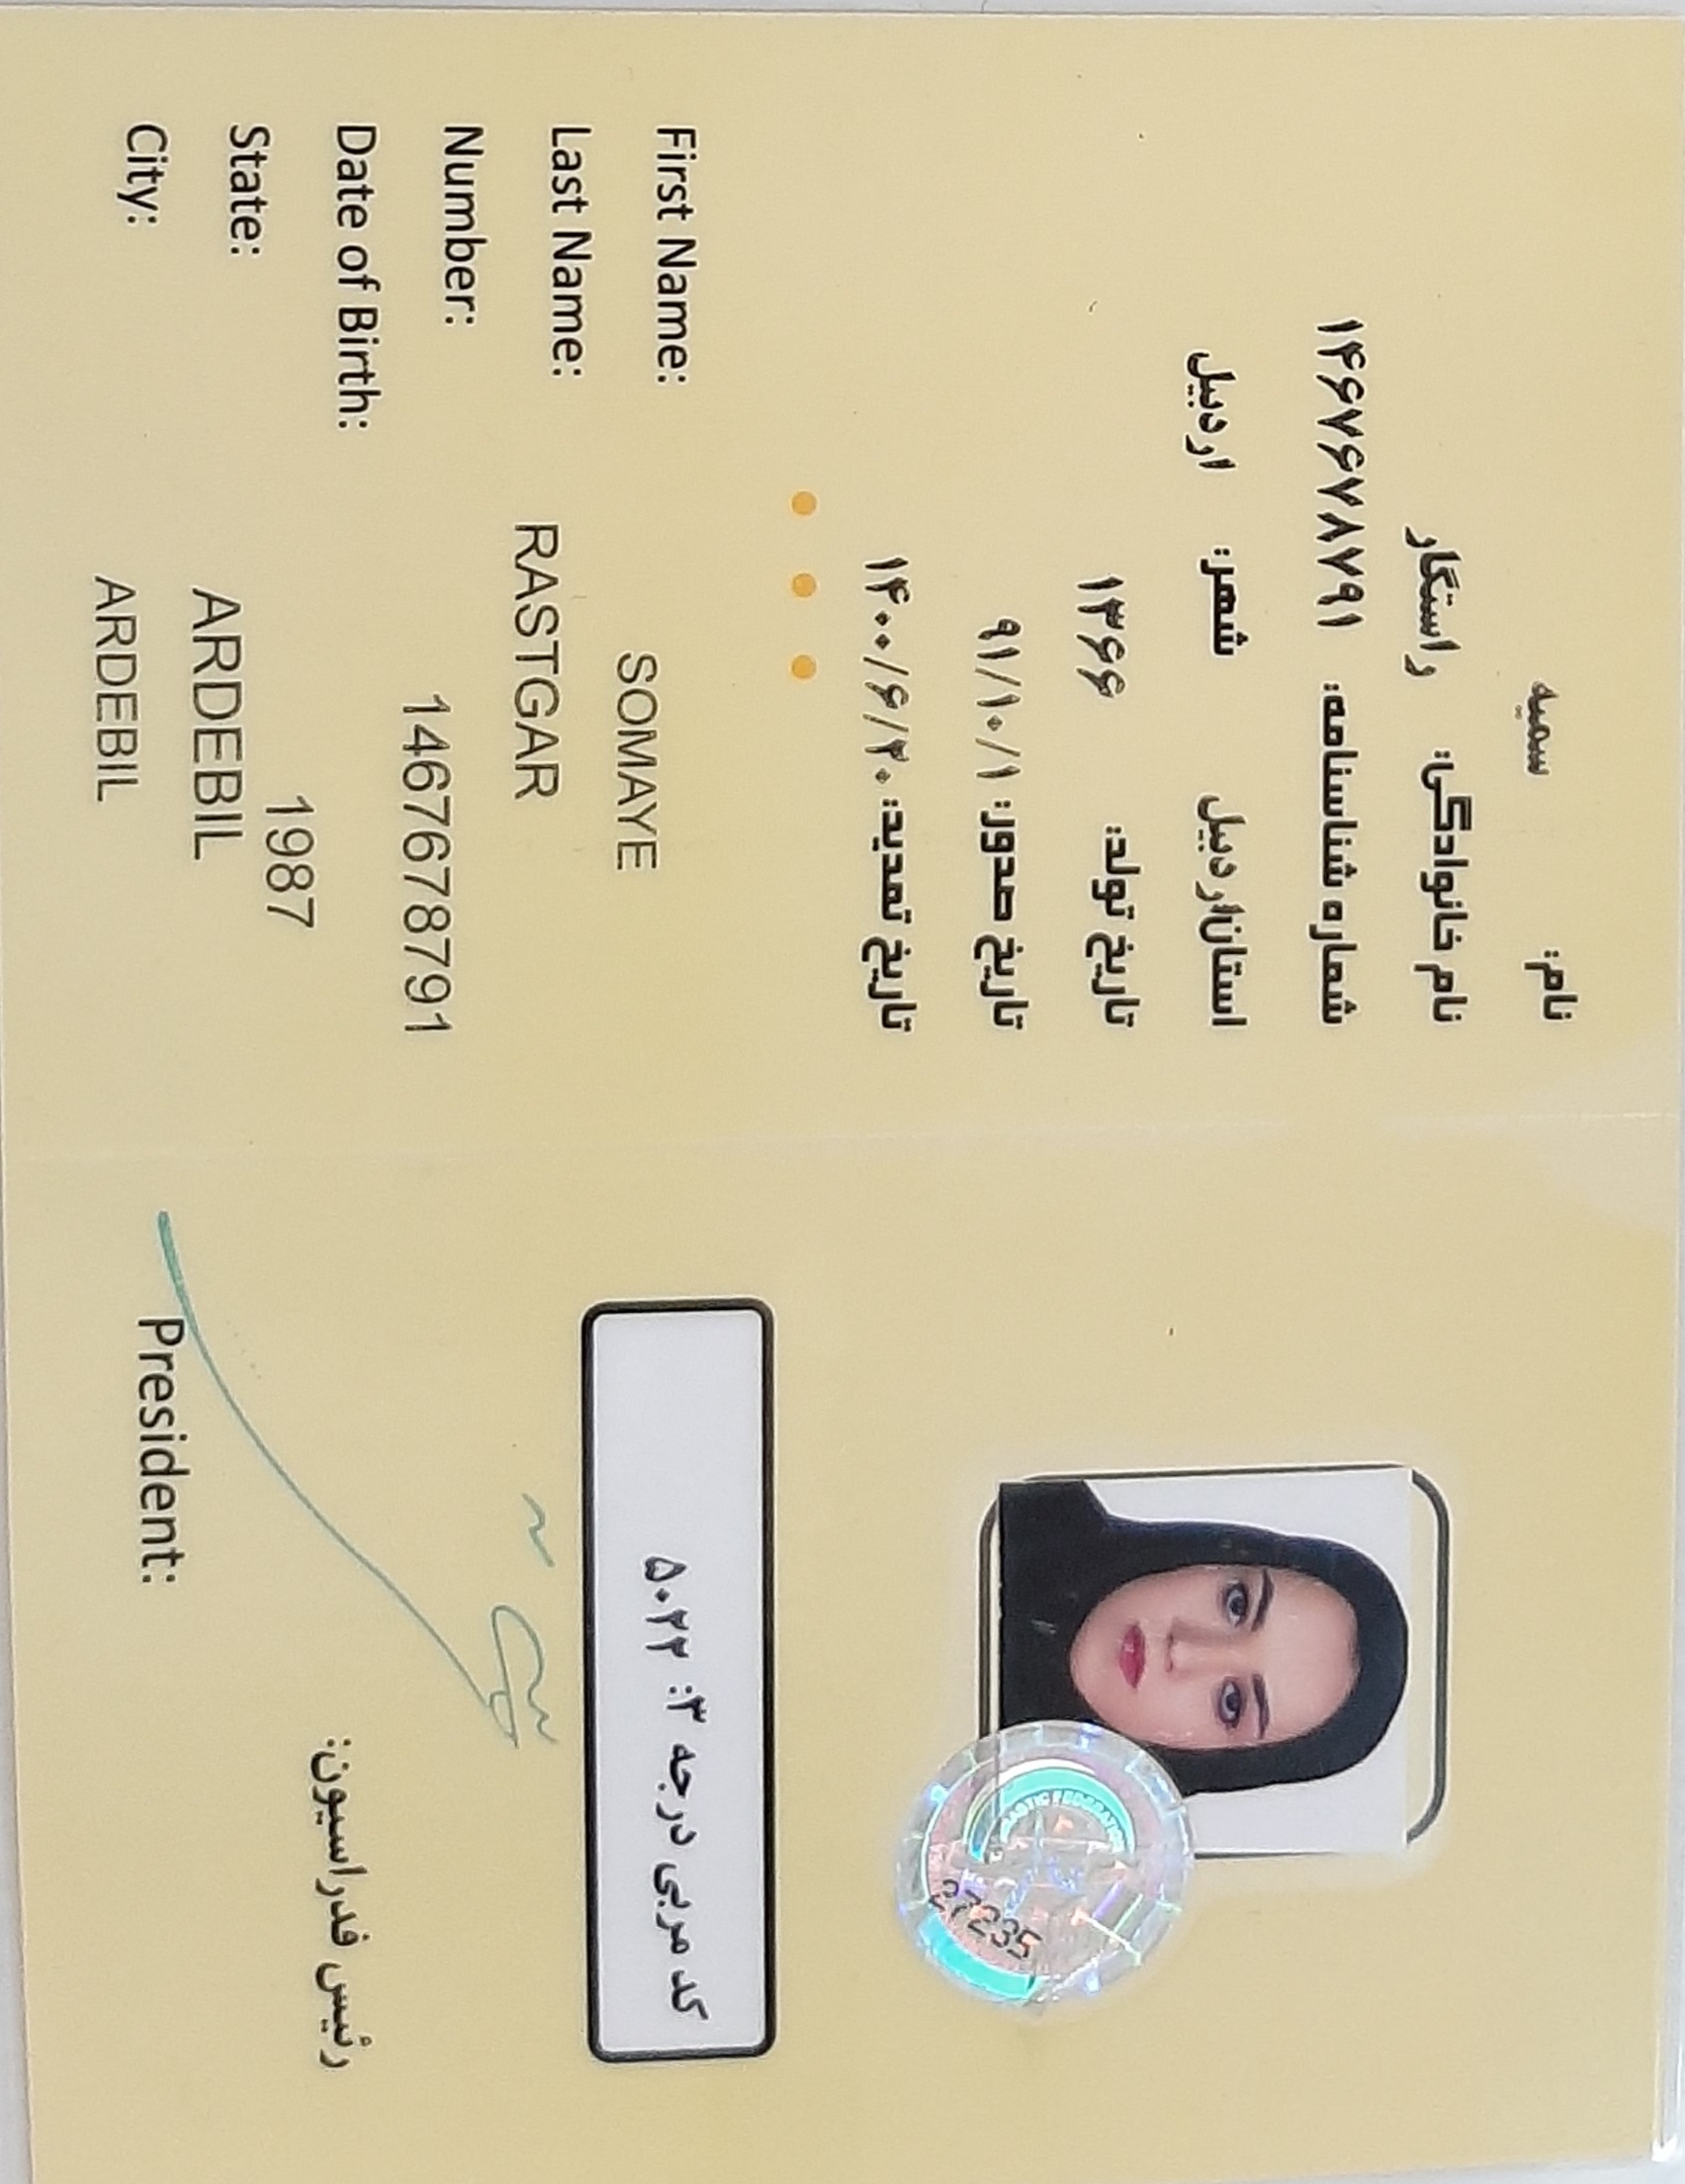 نام: سمیه
نام خانوادگی: راستگار
شماره شناسنامه: ۱۴۶۷۶۷۸۷۹۱
استان:اردبیل شهر: اردبیل
تاریخ تولد: ۱۳۶۶
تاریخ صدور: ۹۱/۱۰/۱
تاریخ تمدید: ۱۴۰۰/۶/۳۰
First Name: SOMAYE
Last Name: RASTGAR
Number: 1467678791
Date of Birth: 1987
State: ARDEBIL
City: ARDEBIL
FEDERATION
27235
کد مربی درجه ۳: ۵۰۲۲
رئیس فدراسیون:
President: